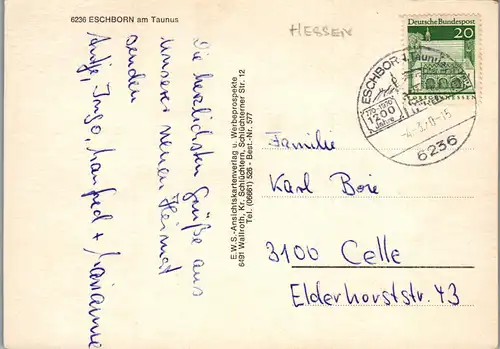 6236 ESCHBORN am Taunus
HESSEN
Deutsche Bundespost
20
LORSCH/HESSEN
ESCHBORN, Taunus
770-1970
1200
Jahre
-15
6236
Die herzlichsten Grüße aus
unserer neuen Heimat
senden
Antje, Ingo, Manfred + Marianne
E.W.S.-Ansichtskartenverlag u. Werbeprospekte
6491 Wallroth, Kr. Schlüchtern, Schlüchterner Str. 12
Tel. (06661) 526 - Best.-Nr. 577
Familie
Karl Boie
3100 Celle
Elderhorststr. 43